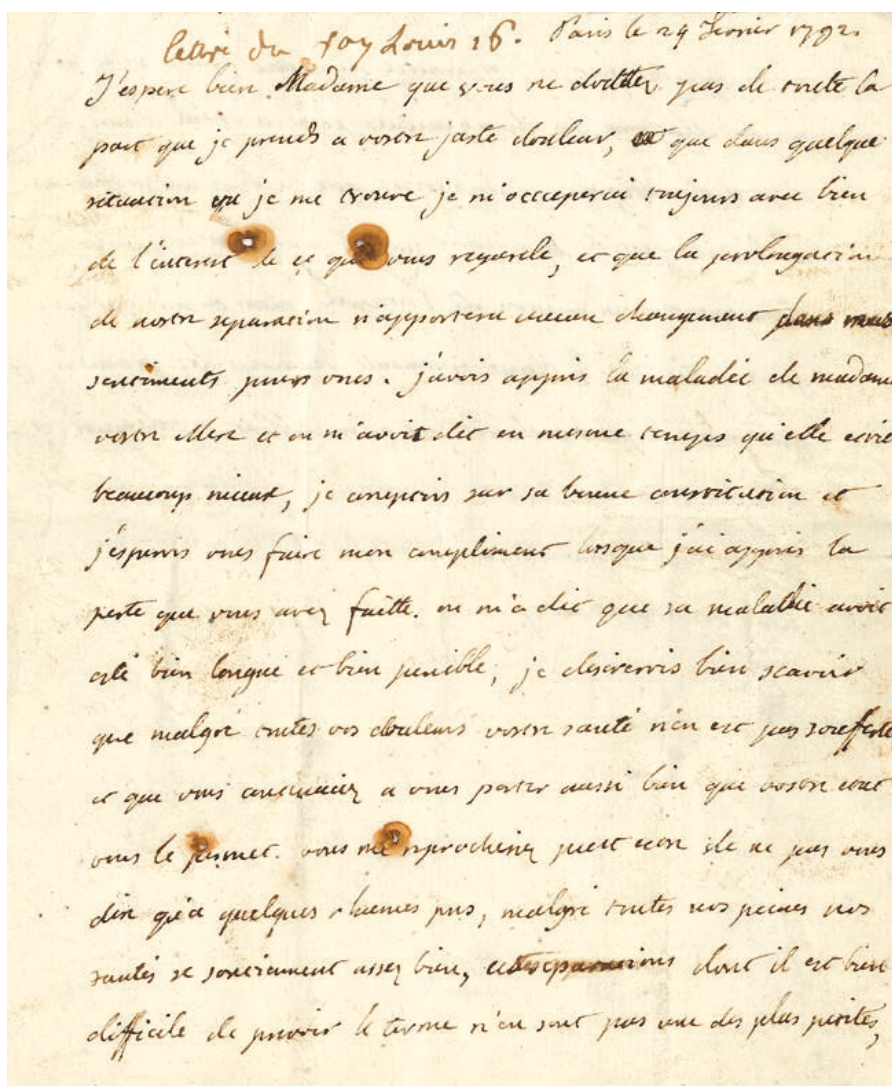 lettre du roy Louis 16. Paris le 29 Fevrier 1792.
J'espere bien Madame que vous ne douttez pas de toute la
part que je prends a vostre juste douleur, et que dans quelque
situation que je me trouve je m'occcuperai toujours avec bien
de l'interest de ce qui vous regarde, et que la prolongation
de nostre separation n'apportera aucun changement dans mes
sentiments pour vous. j'avois appris la maladie de madame
vostre Mere et on m'avoit dit en mesme temps qu'elle estoit
beaucoup mieux, je comptois sur sa bonne constitution et
j'esperois vous faire mon compliment lorsque j'ai appris la
perte que vous avez faitte. on m'a dit que sa maladie avoit
esté bien longue et bien penible, je desirerois bien scavoir
que malgré toutes vos douleurs vostre santé n'en est pas soufferte
et que vous continuiez a vous porter aussi bien que vostre etat
vous le permet. vous me reprocheriez peut etre de ne pas vous
dire qu'a quelques rhumes pres, malgré toutes nos peines nos
santés se soutiennent assez bien, les separations dont il est bien
difficile de prevoir le terme n'en sont pas une des plus petites,